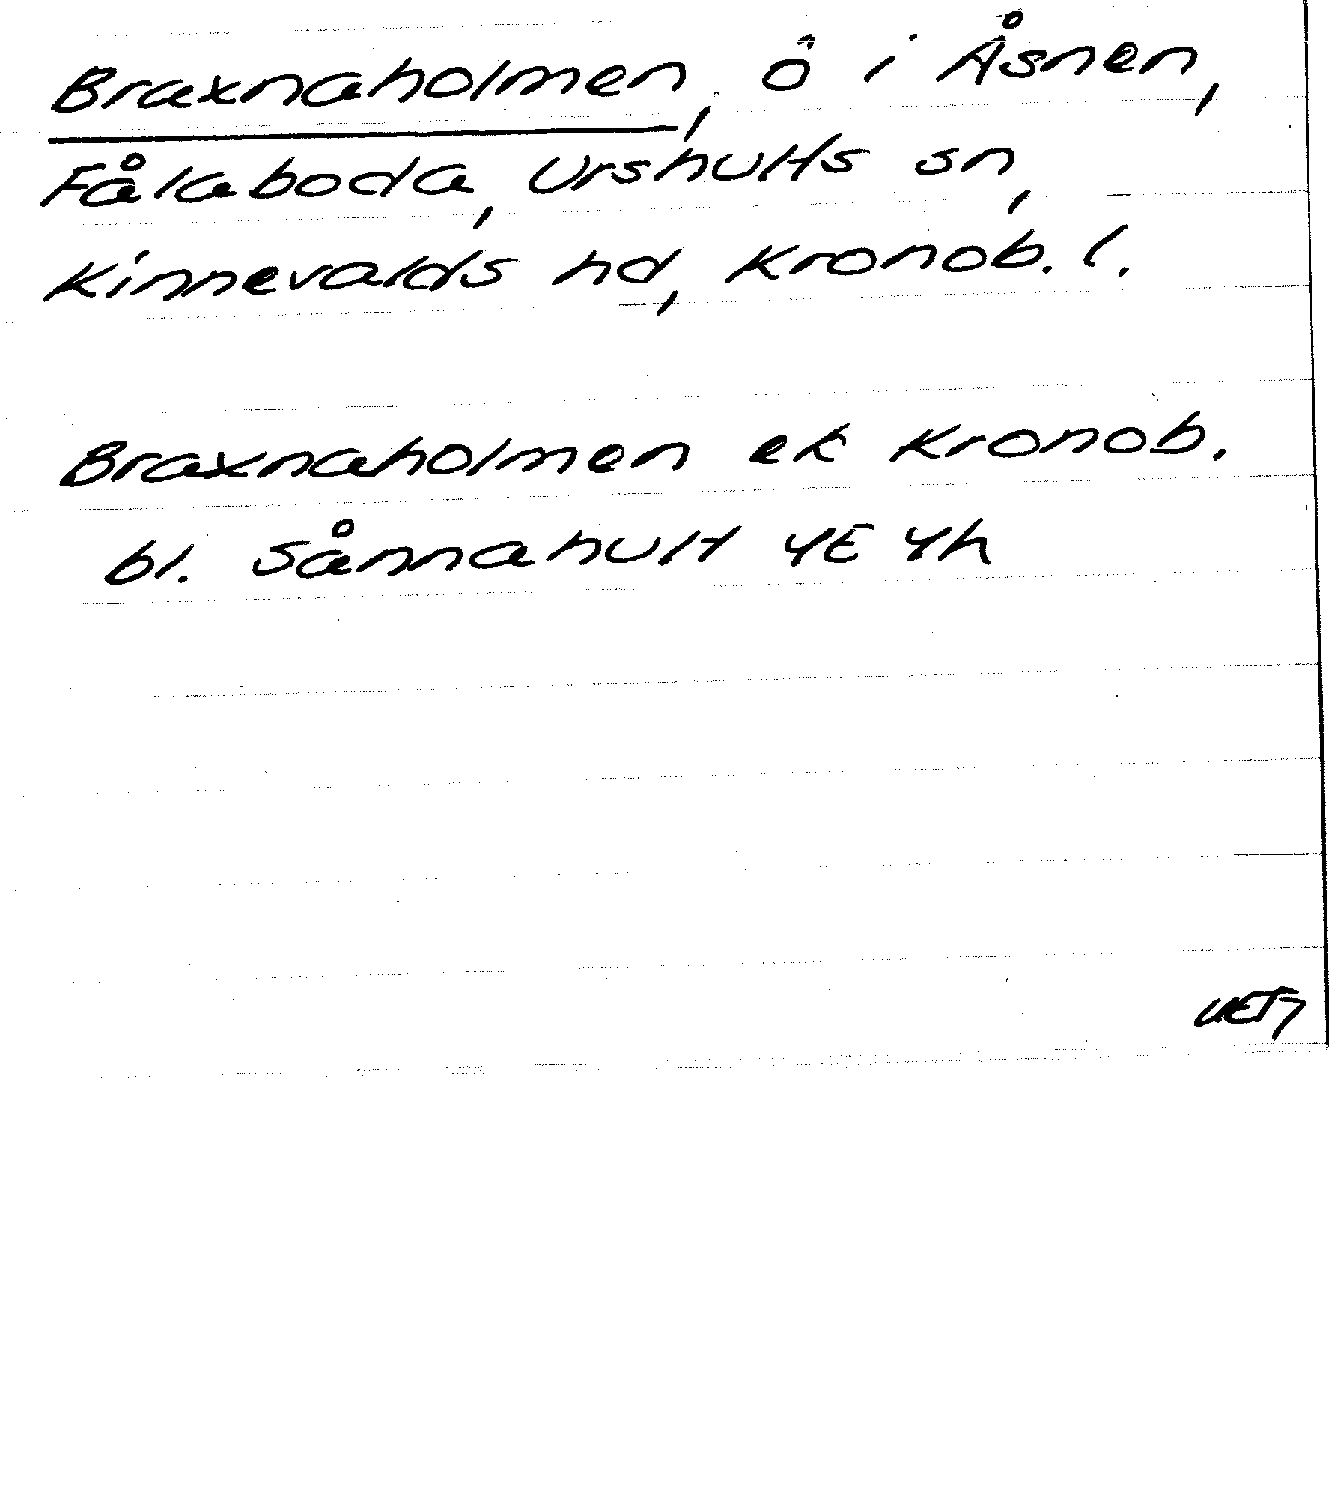 Braxnaholmen, ö i Åsnen,
Fålaboda, Urshults sn,
Kinnevalds hd, Kronob. l.
Braxnaholmen ek Kronob.
bl. Sånnahult 4E 4h